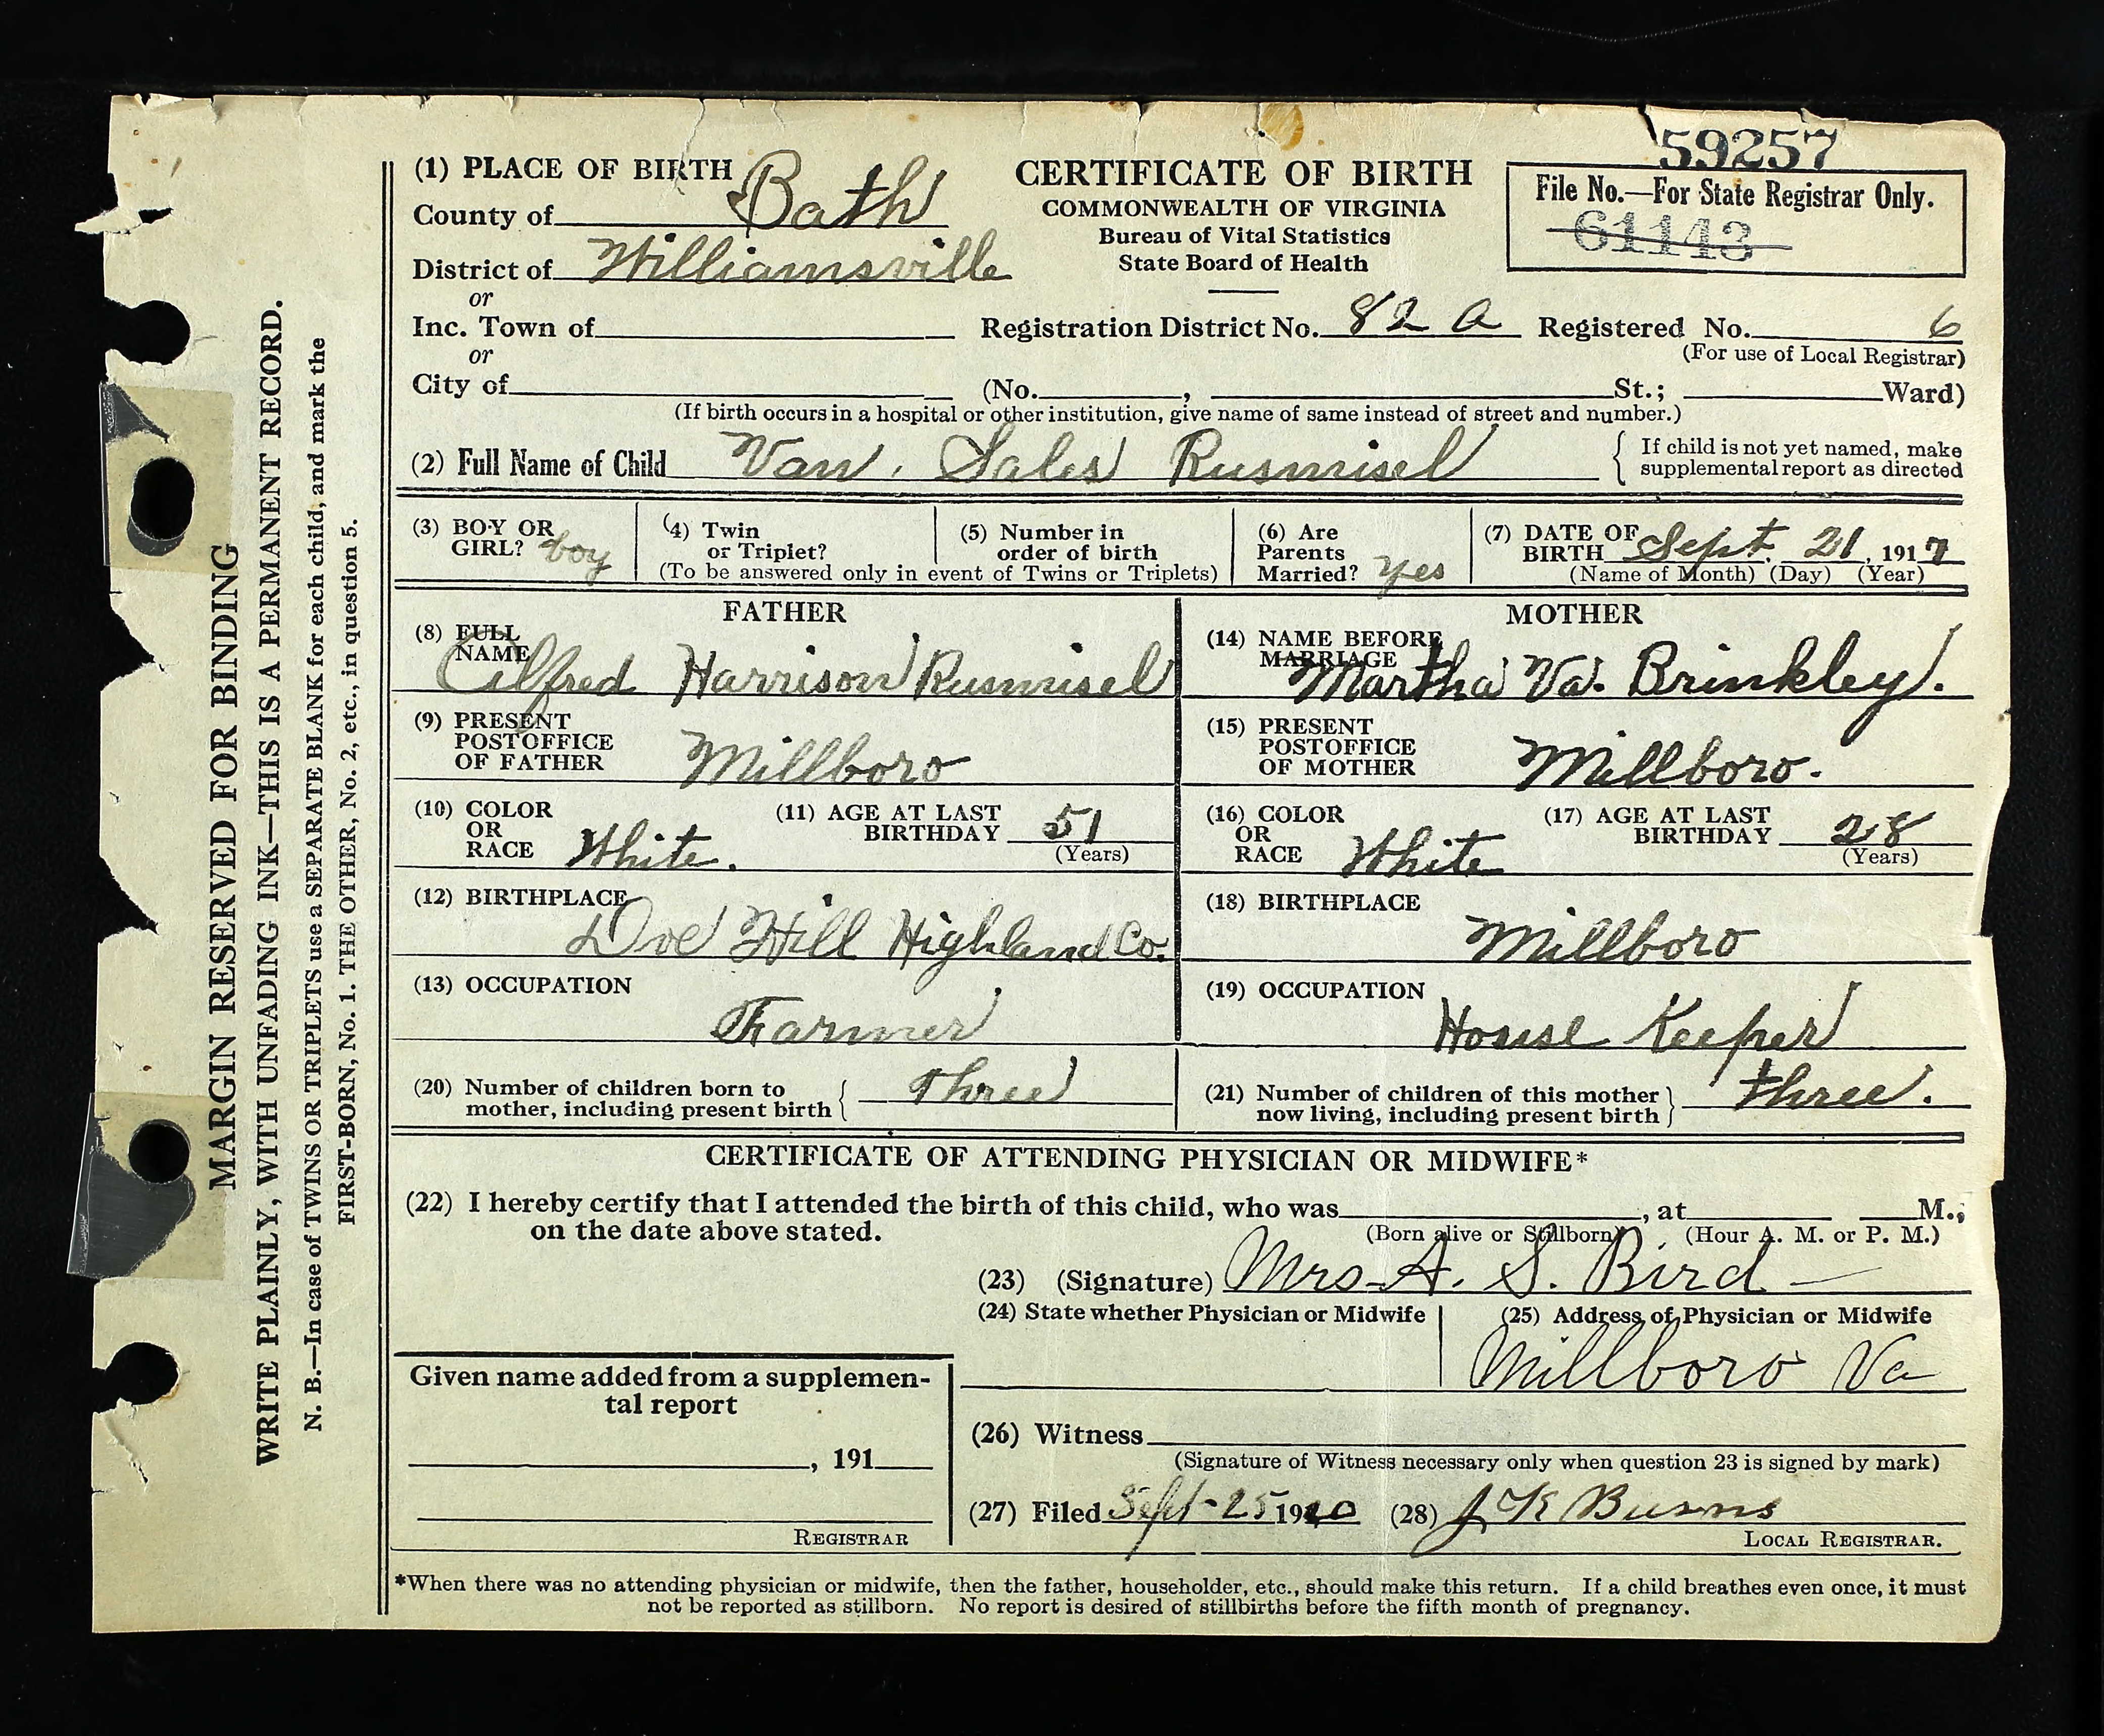 59257
(1) PLACE OF BIRTH
CERTIFICATE OF BIRTH
COMMONWEALTH OF VIRGINIA
Bureau of Vital Statistics
State Board of Health
File No.—For State Registrar Only.
61143
County of Bath
District of Williamsville
or
Inc. Town of
Registration District No. 82 A Registered No. 6
(For use of Local Registrar)
or
City of (No. , St.; Ward)
(If birth occurs in a hospital or other institution, give name of same instead of street and number.)
(2) Full Name of Child Van. Sales Rusmisel
{ If child is not yet named, make
supplemental report as directed
(3) BOY OR
GIRL? boy
(4) Twin
or Triplet?
(5) Number in
order of birth
(To be answered only in event of Twins or Triplets)
(6) Are
Parents
Married? yes
(7) DATE OF
BIRTH Sept. 21, 1917
(Name of Month) (Day) (Year)
FATHER
(8) FULL
NAME
Alfred Harrison Rusmisel
MOTHER
(14) NAME BEFORE
MARRIAGE
Martha Va. Brinkley.
(9) PRESENT
POSTOFFICE
OF FATHER Millboro
(15) PRESENT
POSTOFFICE
OF MOTHER Millboro.
(10) COLOR
OR
RACE White.
(11) AGE AT LAST
BIRTHDAY 51
(Years)
(16) COLOR
OR
RACE White
(17) AGE AT LAST
BIRTHDAY 28
(Years)
(12) BIRTHPLACE
Doe Hill Highland Co.
(18) BIRTHPLACE
Millboro
(13) OCCUPATION
Farmer
(19) OCCUPATION
House Keeper
(20) Number of children born to
mother, including present birth { Three
(21) Number of children of this mother
now living, including present birth } three.
CERTIFICATE OF ATTENDING PHYSICIAN OR MIDWIFE*
(22) I hereby certify that I attended the birth of this child, who was , at M.,
on the date above stated.
(Born alive or Stillborn) (Hour A. M. or P. M.)
(23) (Signature) Mrs A. S. Bird
(24) State whether Physician or Midwife
(25) Address of Physician or Midwife
Millboro Va
Given name added from a supplemen-
tal report
, 191
REGISTRAR
(26) Witness
(Signature of Witness necessary only when question 23 is signed by mark)
(27) Filed Sept-25 1920 (28) J K Burns
LOCAL REGISTRAR.
*When there was no attending physician or midwife, then the father, householder, etc., should make this return. If a child breathes even once, it must
not be reported as stillborn. No report is desired of stillbirths before the fifth month of pregnancy.
MARGIN RESERVED FOR BINDING
WRITE PLAINLY, WITH UNFADING INK—THIS IS A PERMANENT RECORD.
N. B.—In case of TWINS OR TRIPLETS use a SEPARATE BLANK for each child, and mark the
FIRST-BORN, No. 1. THE OTHER, No. 2, etc., in question 5.